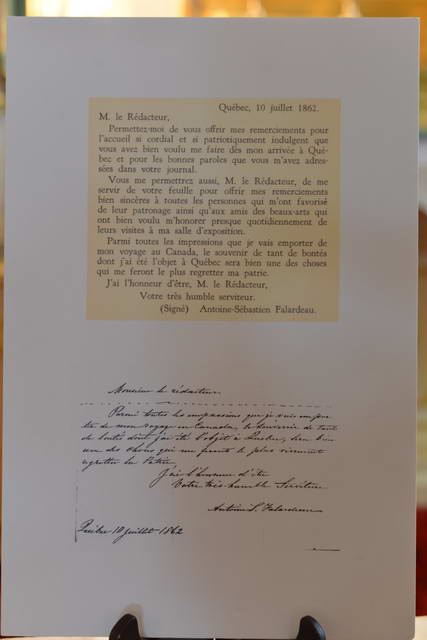 Québec, 10 juillet 1862.
M. le Rédacteur,
Permettez-moi de vous offrir mes remerciements pour
l'accueil si cordial et si patriotiquement indulgent que
vous avez bien voulu me faire dès mon arrivée à Qué-
bec et pour les bonnes paroles que vous m'avez adres-
sées dans votre journal.
Vous me permettrez aussi, M. le Rédacteur, de me
servir de votre feuille pour offrir mes remerciements
bien sincères à toutes les personnes qui m'ont favorisé
de leur patronage ainsi qu'aux amis des beaux-arts qui
ont bien voulu m'honorer presque quotidiennement de
leurs visites à ma salle d'exposition.
Parmi toutes les impressions que je vais emporter de
mon voyage au Canada, le souvenir de tant de bontés
dont j'ai été l'objet à Québec sera bien une des choses
qui me feront le plus regretter ma patrie.
J'ai l'honneur d'être, M. le Rédacteur,
Votre très humble serviteur.
(Signé) Antoine-Sébastien Falardeau.
Monsieur le rédacteur
Parmi toutes les impressions que je vais empor
ter de mon voyage en Canada, le souvenir de tant
de bontés dont j'ai été l'objet à Québec, sera bien
une des choses qui me feront le plus vivement
regretter la Patrie
J'ai l'honneur d'être
Votre très humble Serviteur
Antoine S. Falardeau
Québec 10 juillet 1862